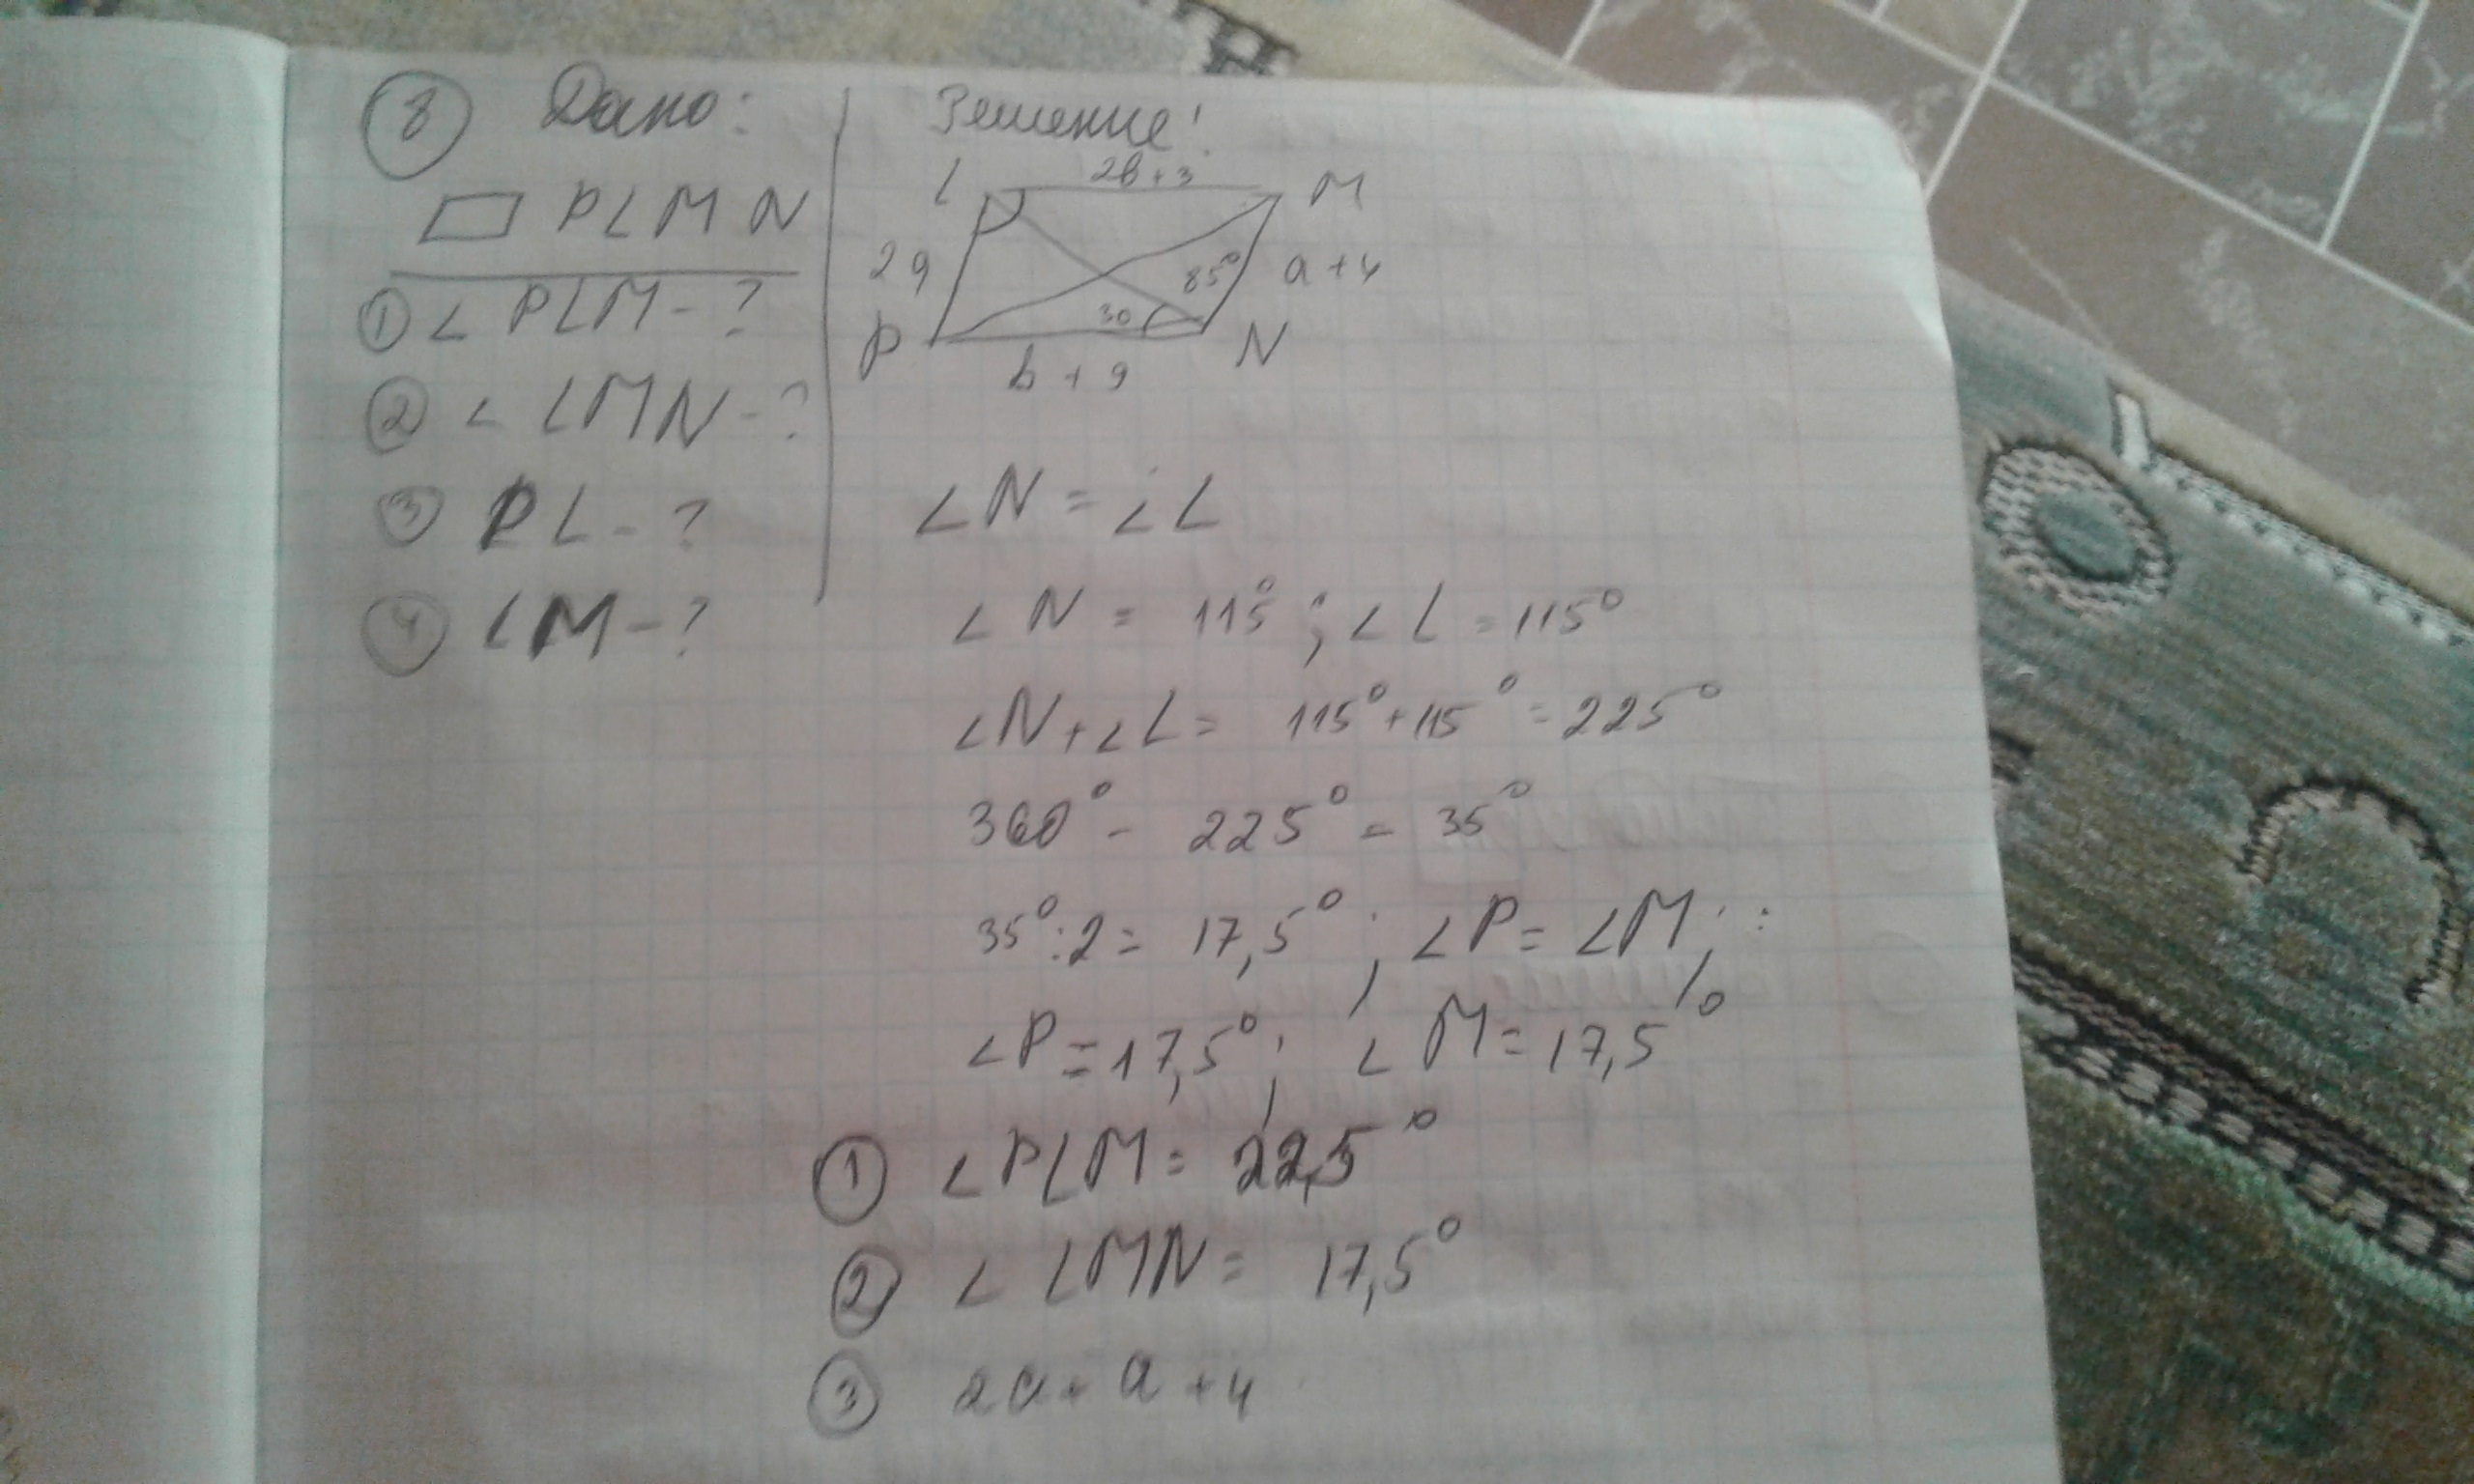 8 Дано:
▱ PLMN
① ∠ PLM - ?
② ∠ LMN - ?
③ PL - ?
④ LM - ?
Решение!
L 2b+3 M
2a 85° a+4
P 30 N
b + 9
∠N = ∠L
∠N = 115°; ∠L = 115°
∠N + ∠L = 115° + 115° = 225°
360° - 225° = 35°
35° : 2 = 17,5°; ∠P = ∠M;
∠P = 17,5°; ∠M = 17,5°
① ∠PLM = 22,5°
② ∠LMN = 17,5°
③ 2a + a + 4